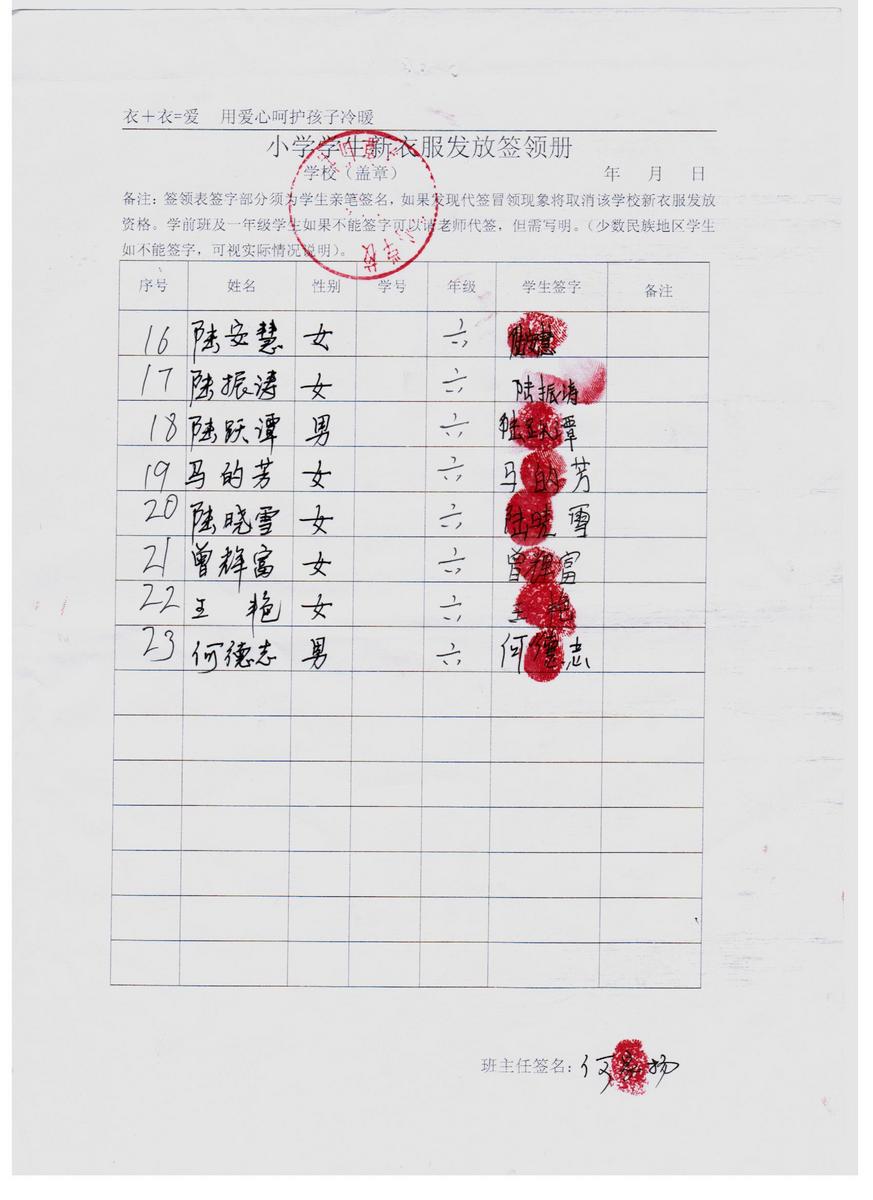 衣+衣=爱 用爱心呵护孩子冷暖
小学学生新衣服发放签领册
学校（盖章） 年 月 日
备注：签领表签字部分须为学生亲笔签名，如果发现代签冒领现象将取消该学校新衣服发放
资格。学前班及一年级学生如果不能签字可以请老师代签，但需写明。（少数民族地区学生
如不能签字，可视实际情况说明）。
序号 姓名 性别 学号 年级 学生签字 备注
16 陆安慧 女 六 陆安慧
17 陆振涛 女 六 陆振涛
18 陆跃谭 男 六 陆跃谭
19 马的芳 女 六 马的芳
20 陆晓雪 女 六 陆晓雪
21 曾辉富 女 六 曾辉富
22 王艳 女 六 王艳
23 何德志 男 六 何德志
班主任签名：